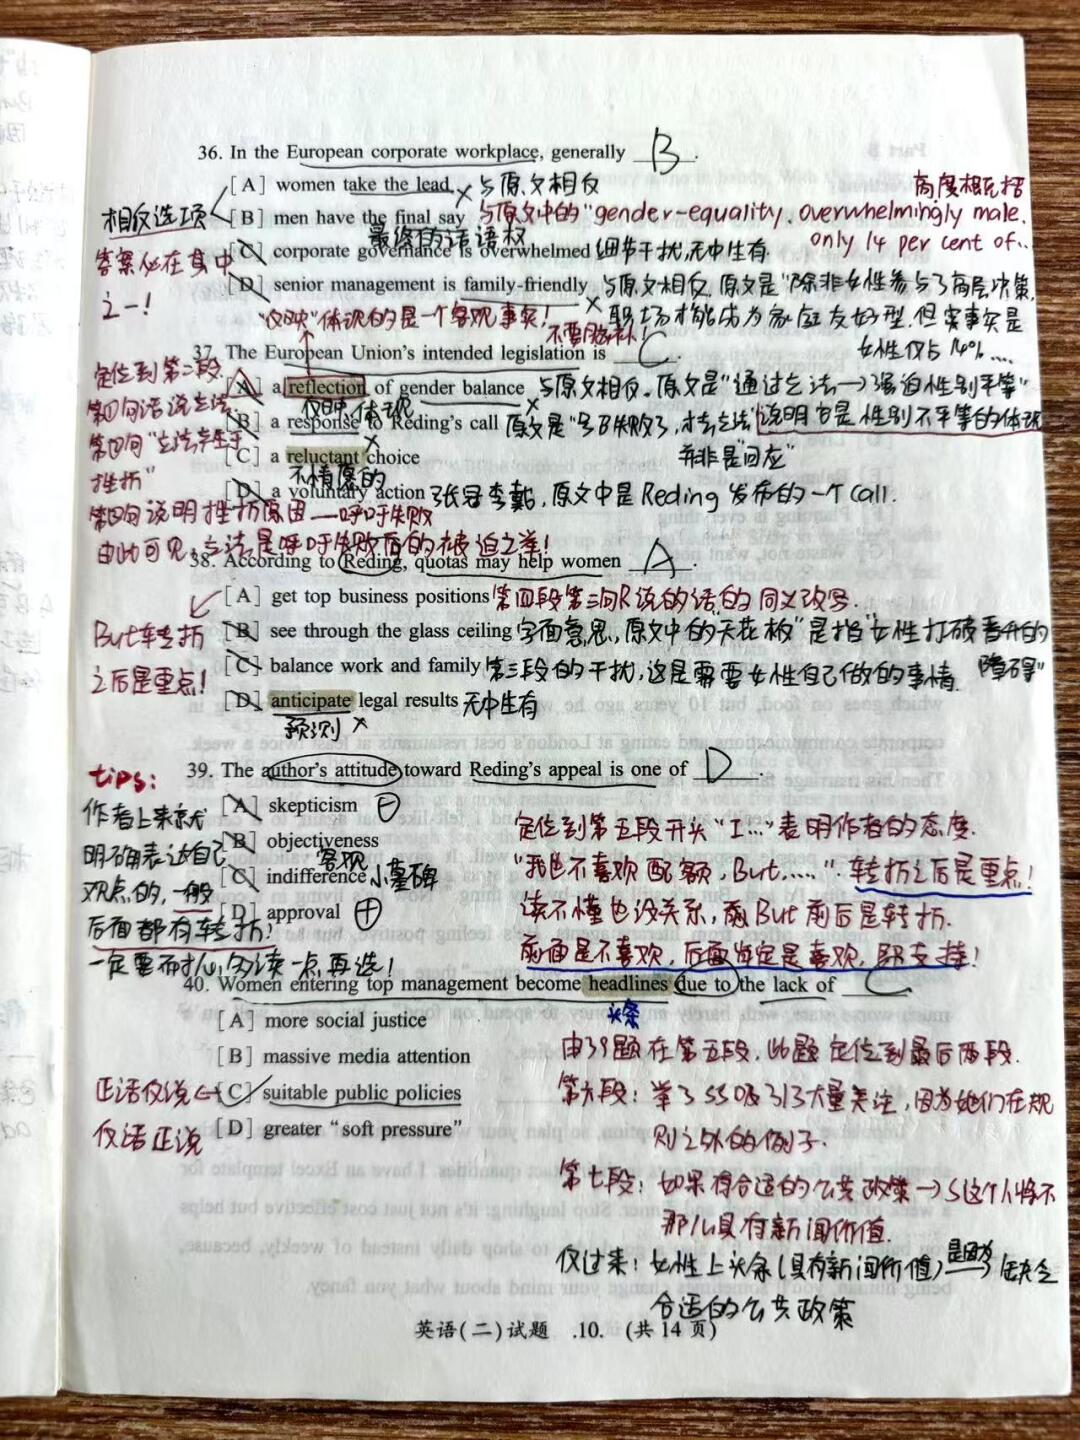 36. In the European corporate workplace, generally B.
[A] women take the lead × 与原文相反
高度概括
相反选项
[B] men have the final say 与原文中的"gender-equality, overwhelmingly male,
最终的话语权
only 14 per cent of..
答案必在其中
[C] corporate governance is overwhelmed 细节干扰,无中生有
[D] senior management is family-friendly × 与原文相反,原文是"除非女性参与了高层决策,
之一!
"反映"体现的是一个客观事实!
职场才能成为家庭友好型,但事实是
不要脑补!
女性仅占14%....
37. The European Union's intended legislation is C.
定位到第二段
[A] a reflection of gender balance 与原文相反。原文是"通过立法→强迫性别平等"
反映、体现
第四句话说立法
[B] a response to Reding's call 原文是"号召失败了,才去立法"说明它是性别不平等的体现
第四句"立法产生于
[C] a reluctant choice 并非是"回应"
不情愿的
挫折"
[D] a voluntary action 张冠李戴,原文中是Reding发布的一个call.
第四句说明挫折原因—呼吁失败
由此可见,立法是呼吁失败后的被迫之举!
38. According to Reding, quotas may help women A.
[A] get top business positions 第四段第三句R说的话的同义改写.
But转折
[B] see through the glass ceiling 字面意思,原文中的"天花板"是指"女性打破晋升的
障碍"
之后是重点!
[C] balance work and family 第三段的干扰,这是需要女性自己做的事情.
[D] anticipate legal results 无中生有
预测 ×
39. The author's attitude toward Reding's appeal is one of D.
tips:
[A] skepticism ⊖
作者上来就
定位到第五段开头"I..."表明作者的态度.
[B] objectiveness
客观
明确表达自己
[C] indifference 小墓碑
"我也不喜欢配额,But,....."转折之后是重点!
观点的,一般
[D] approval ⊕
读不懂也没关系,而But前后是转折.
后面都有转折!
前面是不喜欢,后面肯定是喜欢,即支持!
一定要耐心,多读一点再选!
40. Women entering top management become headlines due to the lack of C
头条
[A] more social justice
由39题在第五段,此题定位到最后两段.
[B] massive media attention
正话反说
[C] suitable public policies
第六段:举了SS吸引了大量关注,因为她们在规
则之外的例子.
反话正说
[D] greater "soft pressure"
第七段:如果有合适的公共政策→S这个人将不
那么具有新闻价值.
反过来:女性上头条(具有新闻价值) 是因为→ 缺乏
合适的公共政策
英语(二)试题 .10. (共14页)